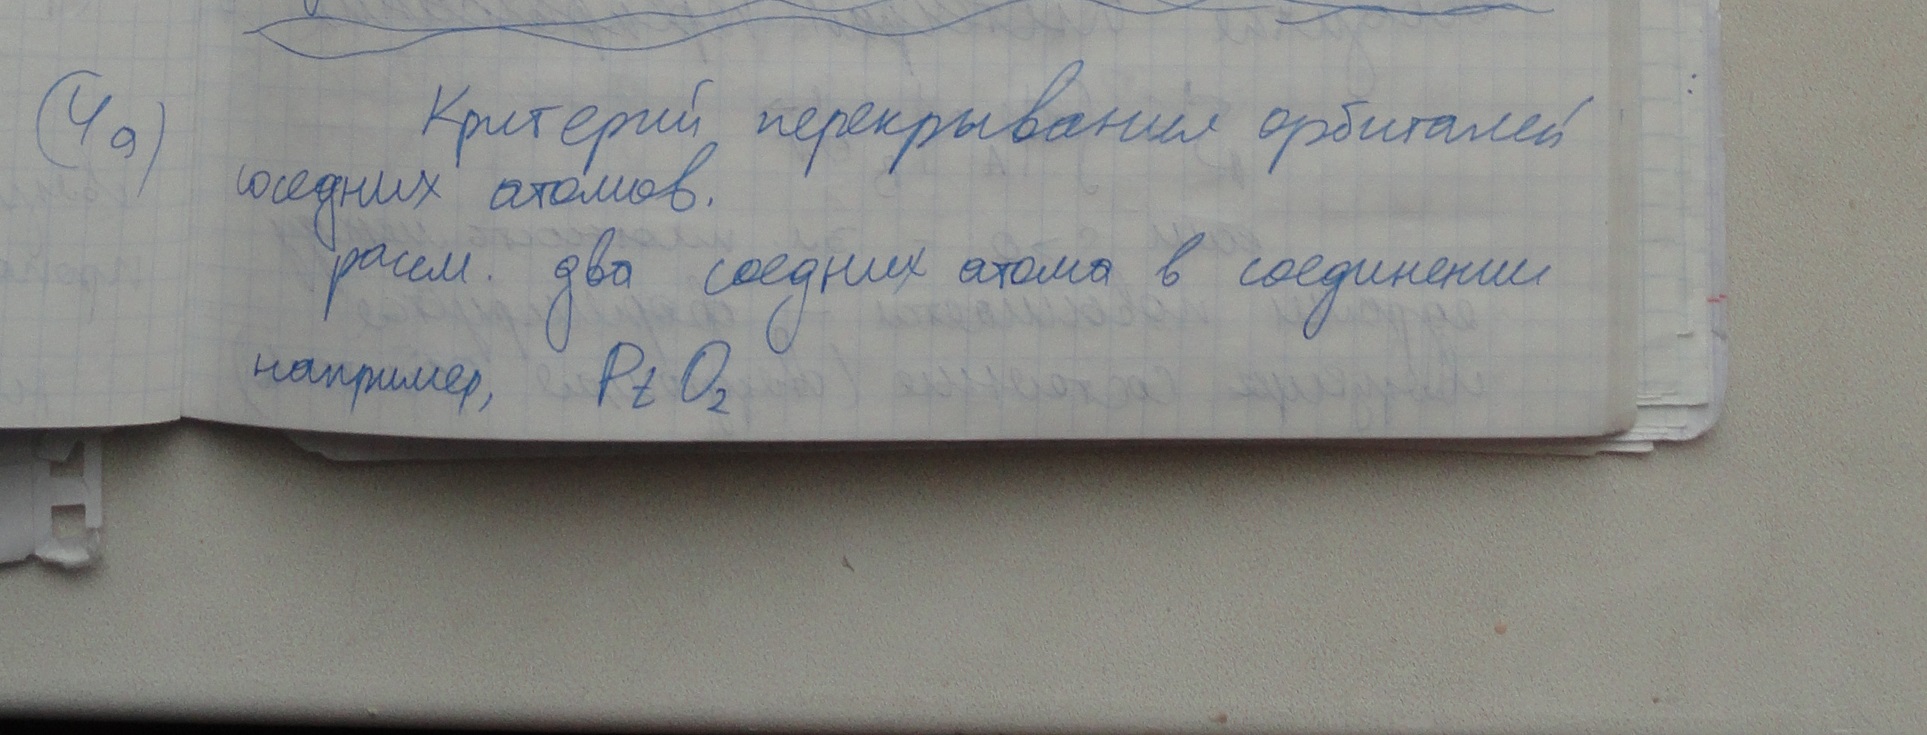 (4a) Критерий перекрывания орбиталей
соседних атомов.
рассм. два соседних атома в соединении
например, PtO₂